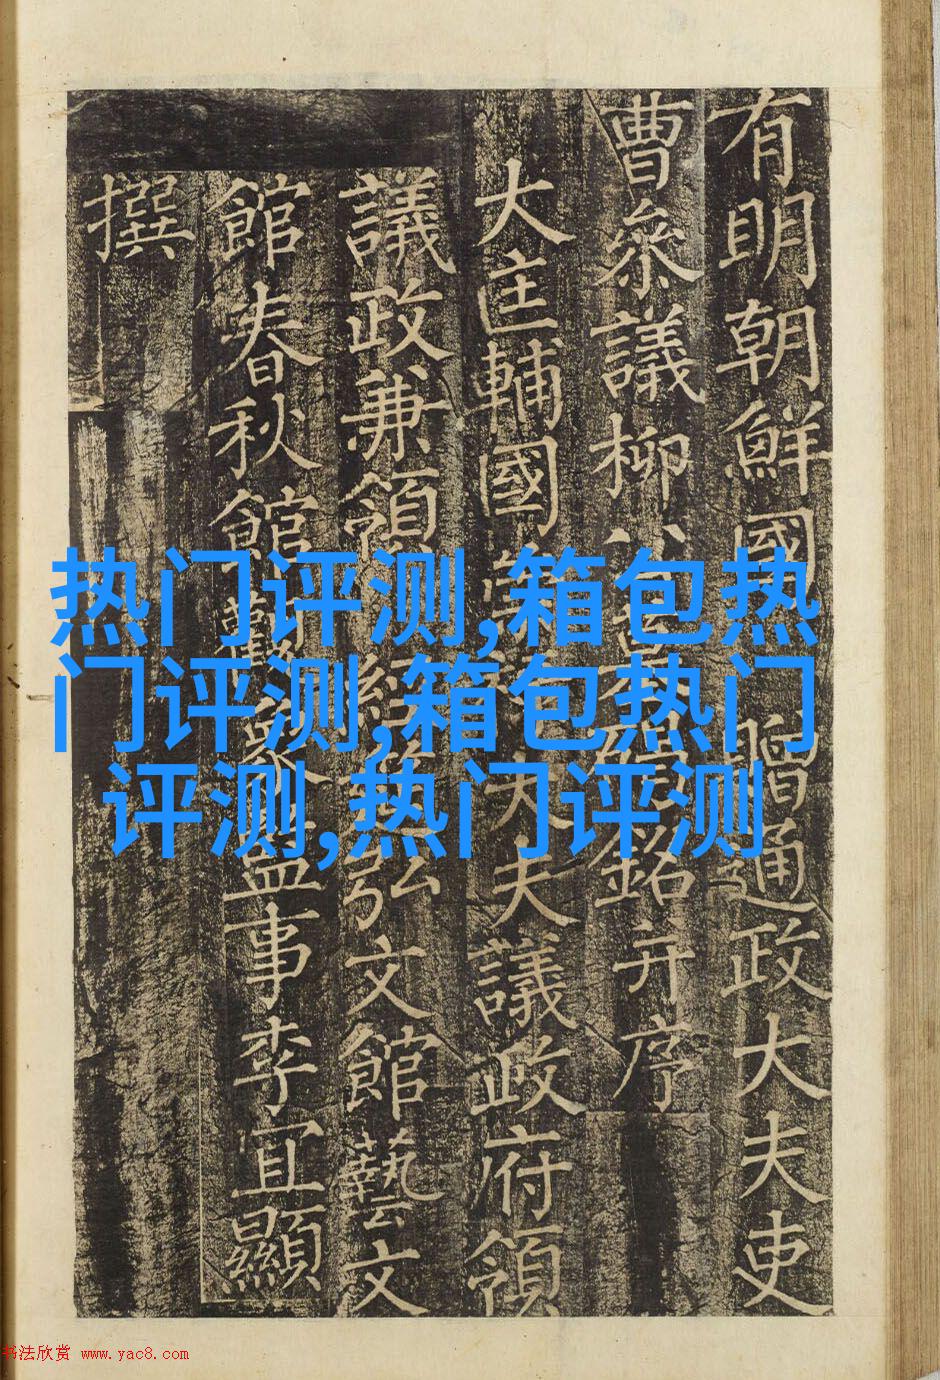 有明朝鮮國 贈通政大夫吏
曹叅議柳公銘并序
大匡輔國崇祿大夫議政府領
議政兼領經筵弘文館藝文
館春秋館觀象監事李宜顯
撰
热门评测,箱包热
门评测,箱包热门
评测,热门评测
书法欣赏 www.yac8.com